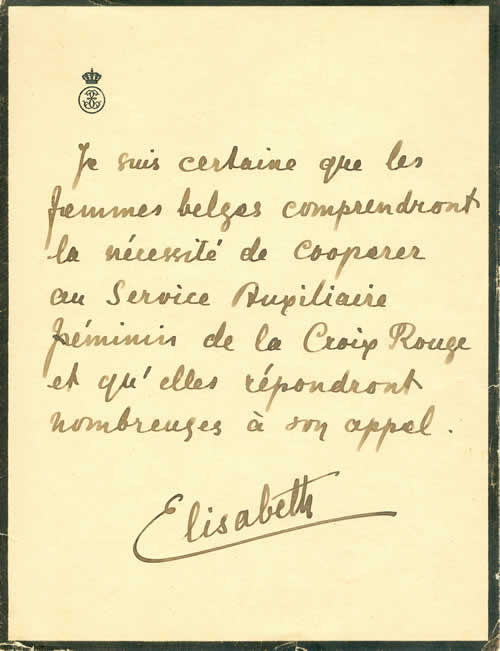 Je suis certaine que les
femmes belges comprendront
la nécessité de cooperer
au Service Auxiliaire
féminin de la Croix Rouge
et qu'elles répondront
nombreuses à son appel.
Elisabeth